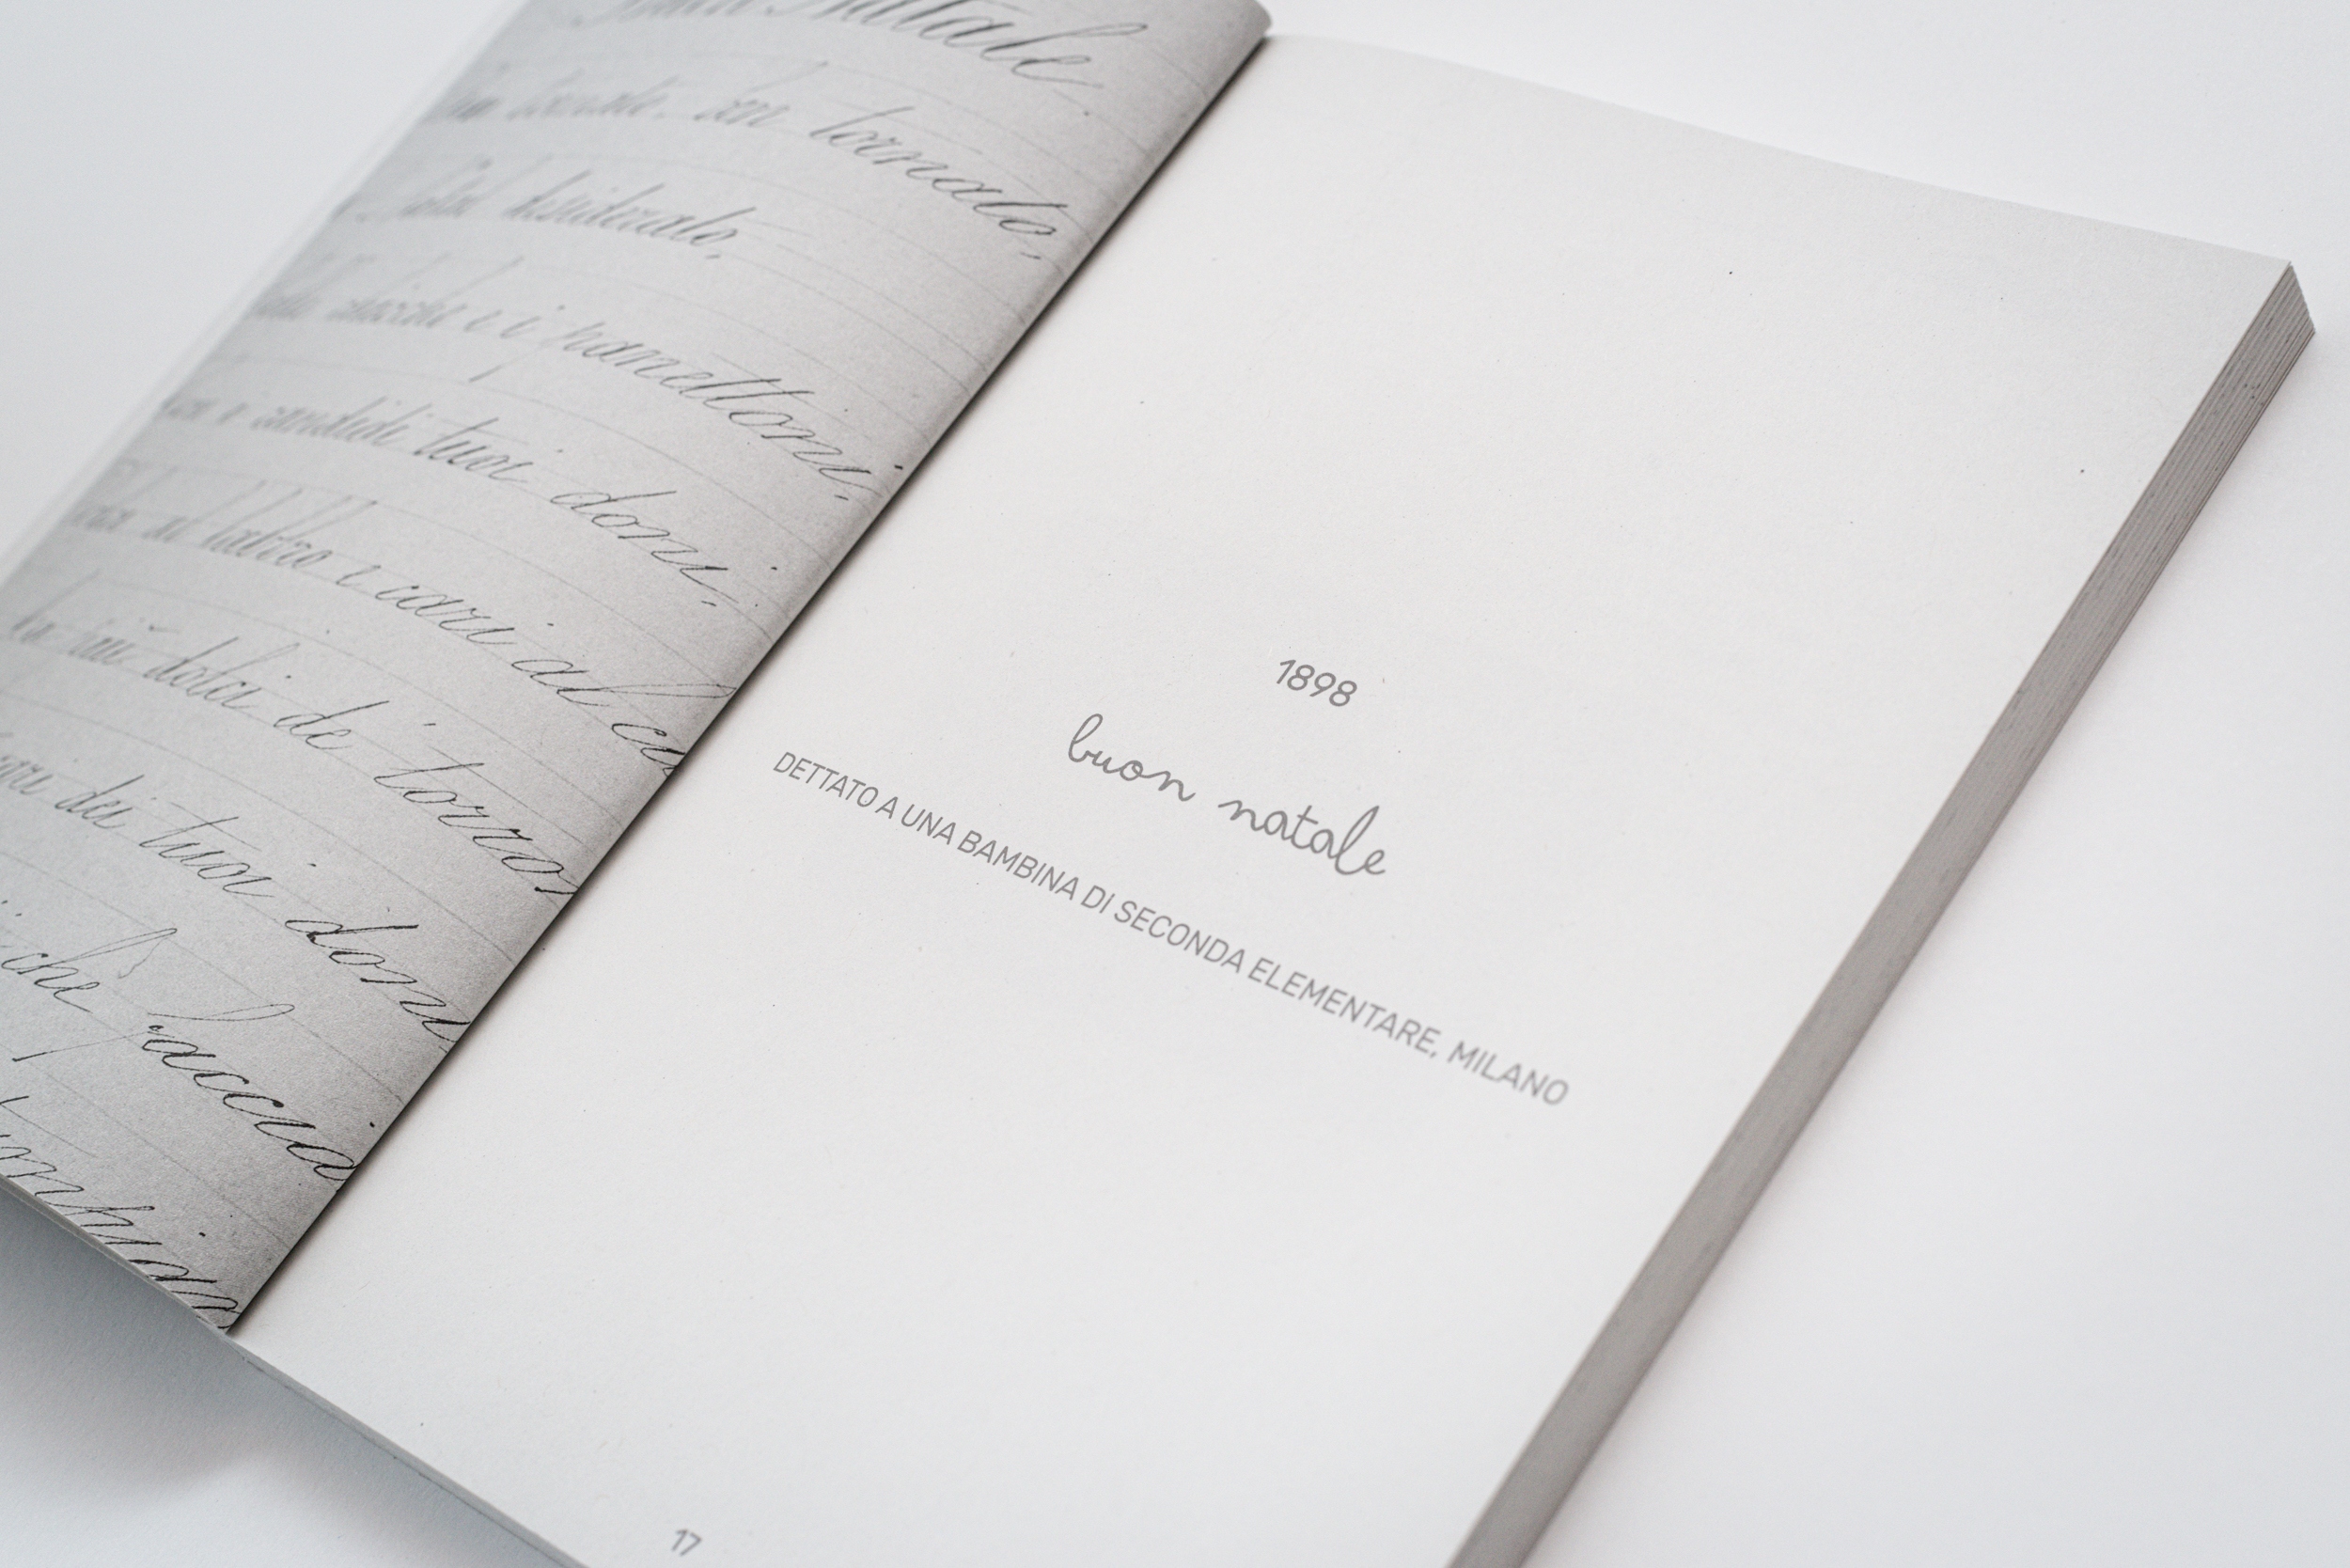 Natale
ben tornato,
desiderato,
e i panettoni,
e candidi tuoi doni,
al babbo e cari al
più dolci de' torro
dei tuoi doni
chè faccia
1898
buon natale
DETTATO A UNA BAMBINA DI SECONDA ELEMENTARE, MILANO
17